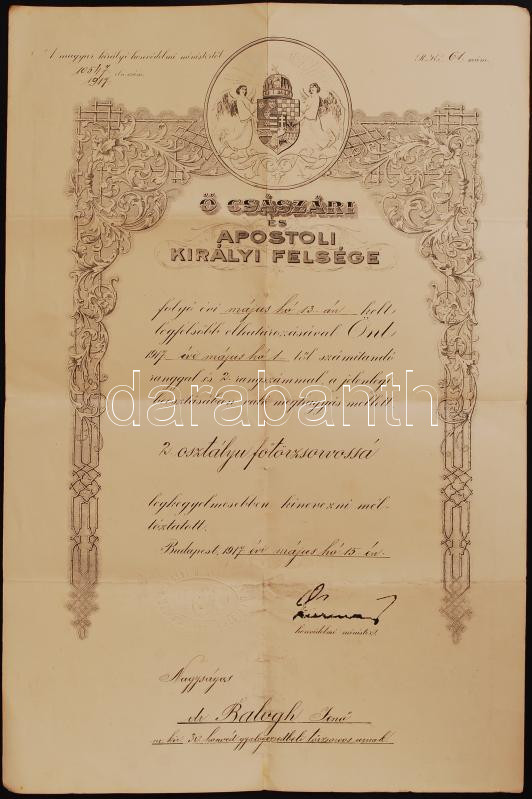 A magyar királyi honvédelmi ministertől
10547 eln. szám.
1917.
R.K. 61. szám.
Ő CSÁSZÁRI
ÉS
APOSTOLI
KIRÁLYI FELSÉGE
folyó évi május hó 13-án kelt
legfelsőbb elhatározásával Önt
1917 évi május hó 1 től számítandó
ranggal és 2 rangszámmal a jelenlegi
beosztásában való meghagyás mellett
2. osztályu főtörzsorvossá
legkegyelmesebben kinevezni mél-
tóztatott.
Budapest, 1917 évi május hó 15-én.
honvédelmi minister.
Nagyságos
dr Balogh Jenő
m. kir. 30. honvéd gyalogezredbeli törzsorvos urnak
darabanth